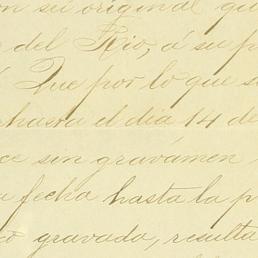 n su original que
del Rio, á su p
Que por lo que s
hasta el dia 14 de
ce sin gravámen
a fecha hasta la p
o gravada, resulta